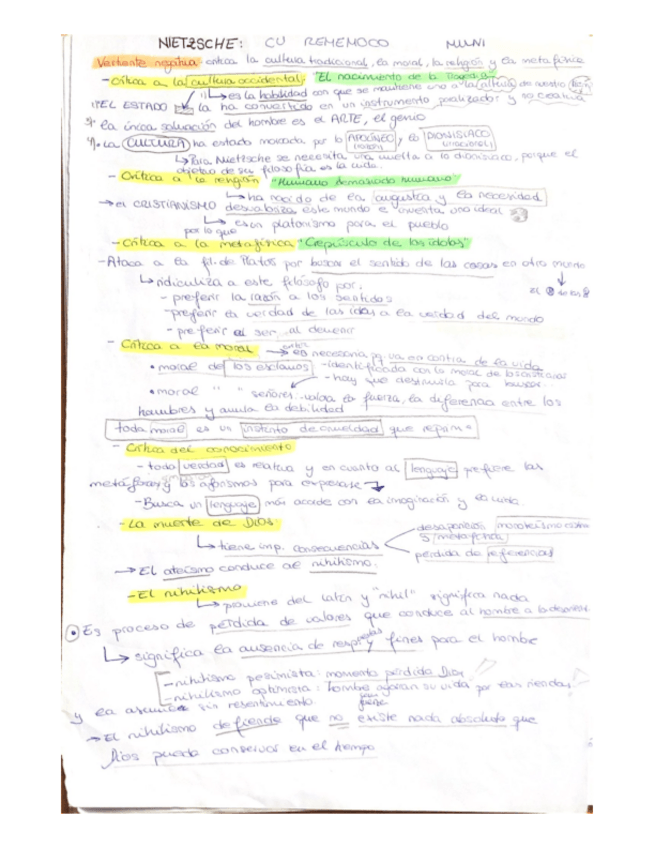 NIETZSCHE: CU REMEMOCO MUNI
Vertiente negativa critica la cultura tradicional, la moral, la religión y la metafísica
- Crítica a la cultura occidental: "El nacimiento de la tragedia"
↳ es la habilidad con que se mantiene una a la cultura de nuestro
EL ESTADO la ha convertido en un instrumento y
* la única salvación del hombre es el ARTE, el genio
• La CULTURA ha estado marcada por lo APOLÍNEO (razón) y lo DIONISIACO (irracional)
↳ Para Nietzsche se necesita una vuelta a lo dionisiaco, porque el
objetivo de su filosofía es la vida.
- Crítica a la religión "Humano demasiado humano"
↳ ha nacido de la angustia y la necesidad
→ el CRISTIANISMO desvaloriza este mundo e inventa uno ideal
por lo que ↳ es un platonismo para el pueblo
- Crítica a la metafísica "Crepúsculo de los ídolos"
- Ataca a la fil. de Platón por buscar el sentido de las cosas en otro mundo
↳ ridiculiza a este filósofo por: el de las
- preferir la razón a los sentidos
- preferir la verdad de las ideas a la verdad del mundo
- preferir el ser al devenir
- Crítica a la moral → es necesaria pq va en contra de la vida
• moral de los esclavos - identificada con la moral de los cristianos
- hay que destruirla para buscar..
• moral " " señores. valora la fuerza, la diferencia entre los
hombres y anula la debilidad
toda moral es un instinto de crueldad que
- Crítica del conocimiento
- toda verdad es relativa y en cuanto al lenguaje prefiere las
metáforas y los aforismos para expresarse
- Busca un lenguaje más acorde con la imaginación y la vida.
- La muerte de Dios
↳ tiene imp. consecuencias desaparición monoteísmo
y metafísica
pérdida de referencias
→ El ateísmo conduce al nihilismo.
- El nihilismo
↳ proviene del latín y "nihil" significa nada
• Es proceso de pérdida de valores que conduce al hombre a la
↳ significa la ausencia de respuestas y fines para el hombre
- nihilismo pesimista: momento pérdida Dios
- nihilismo optimista: hombre su vida por las riendas
y la asume sin resentimiento.
→ El nihilismo defiende que no existe nada absoluto que
Dios pueda conservar en el tiempo